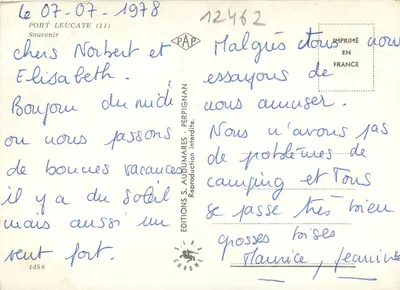 le 07-07-1978
PORT LEUCATE (11)
Souvenir
chers Norbert et
Elisabeth.
Bonjour du midi
ou nous passons
de bonnes vacances
il y a du Soleil
mais aussi un
vent fort.
4458
PAP
EDITIONS S. AUDUMARES - PERPIGNAN
Reproduction interdite.
12462
IMPRIMÉ
EN
FRANCE
Malgrès tous nous
essayons de
nous amuser.
Nous n'avons pas
de problèmes de
camping et Tous
se passe très bien
grosses bises
Maurice, Jeanine